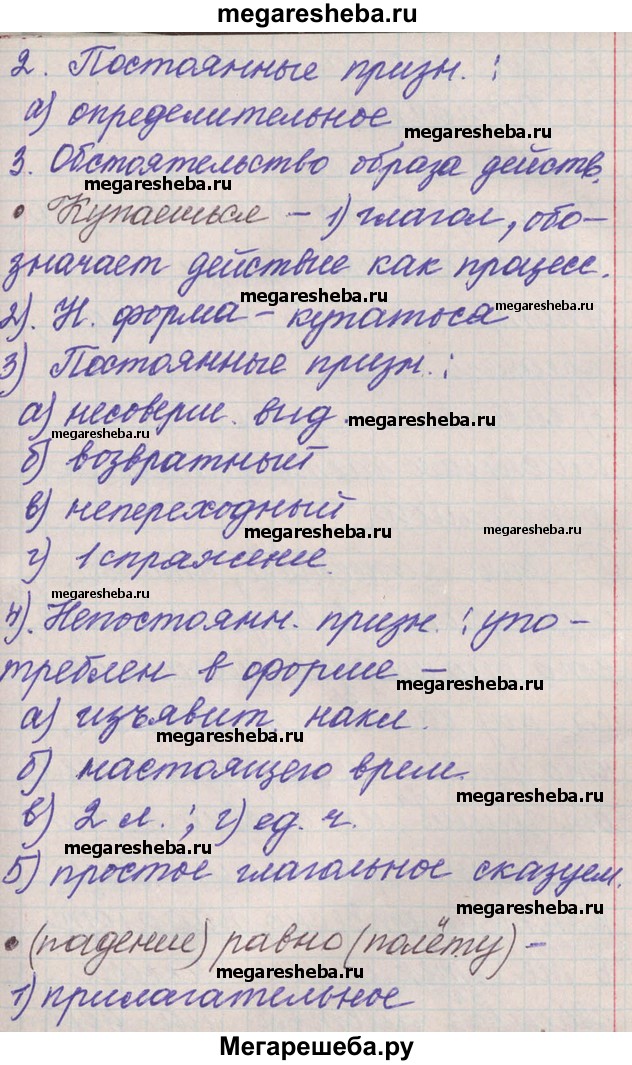 megaresheba.ru
2. Постоянные призн. :
а) определительное
megaresheba.ru
3. Обстоятельство образа действ.
megaresheba.ru
• Купаешься – 1) глагол, обо-
значает действие как процесс.
megaresheba.ru
megaresheba.ru
2). Н. форма – купаться
3) Постоянные призн. :
а) несоверш. вид.
megaresheba.ru
megaresheba.ru
б) возвратный
в) непереходный
megaresheba.ru
megaresheba.ru
г) 1 спряжение.
megaresheba.ru
4). Непостоянн. призн. : упо-
треблен в форме –
megaresheba.ru
а) изъявит. накл.
megaresheba.ru
б) настоящего врем.
megaresheba.ru
в) 2 л. ; г) ед. ч.
megaresheba.ru
5) простое глагольное сказуем.
megaresheba.ru
• (падение) равно (полёту) –
megaresheba.ru
1) прилагательное
Мегарешеба.ру